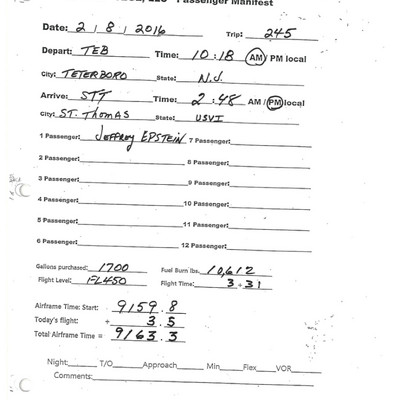 LLC Passenger Manifest
Date: 2 / 8 / 2016 Trip: 245
Depart: TEB Time: 10:18 AM / PM local
City: TETERBORO State: N.J.
Arrive: STT Time: 2:48 AM / PM local
City: ST. THOMAS State: USVI
1 Passenger: JEFFREY EPSTEIN 7 Passenger:
2 Passenger: 8 Passenger:
3 Passenger: 9 Passenger:
4 Passenger: 10 Passenger:
5 Passenger: 11 Passenger:
6 Passenger: 12 Passenger:
Gallons purchased: 1700 Fuel Burn lbs. 10,612
Flight Level: FL450 Flight Time: 3+31
Airframe Time: Start: 9159.8
Today's flight: + 3.5
Total Airframe Time = 9163.3
Night: T/O Approach Min Flex VOR
Comments: